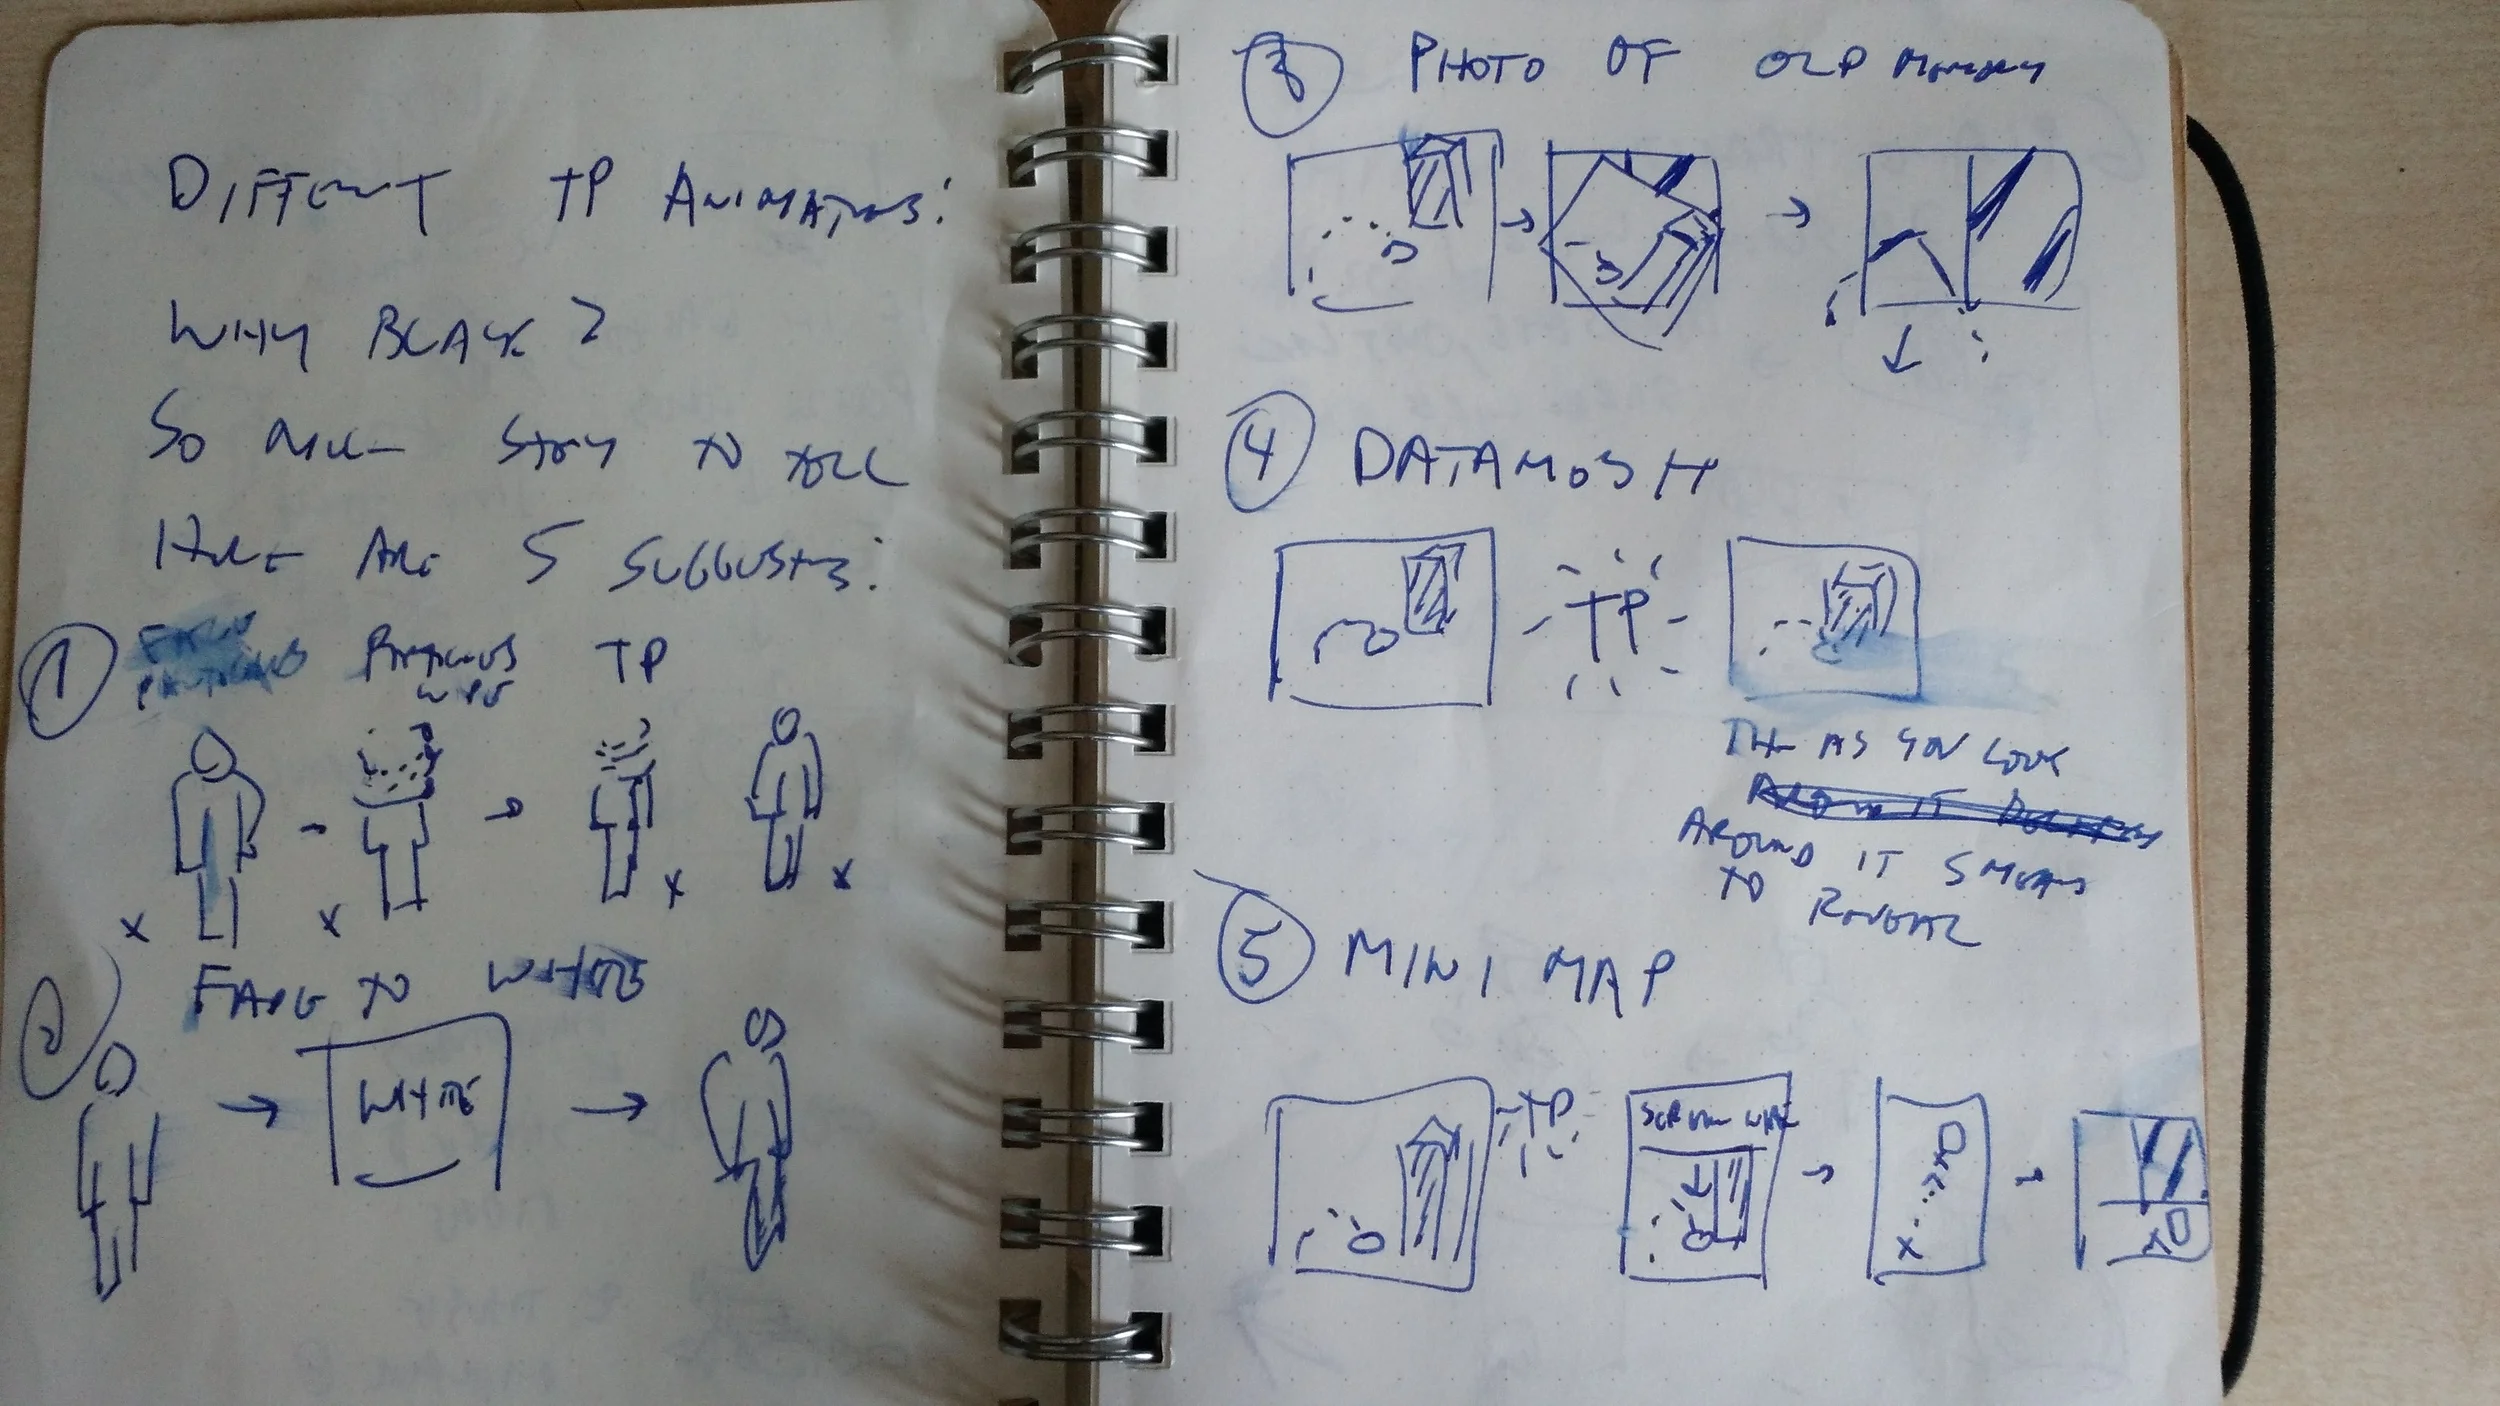 DIFFERENT TP ANIMATIONS:
WHY BLACK?
SO MUCH STORY TO TELL
HERE ARE 5 SUGGESTIONS:
1 PARTICLES TP
WIPE
x x x x
2 FADE TO WHITE
WHITE
3 PHOTO OF OLD MEMORY
4 DATAMOSH
TP
THEN AS YOU LOOK
AROUND IT SMEARS
TO REVEAL
5 MINI MAP
TP
SCREEN WIPE
x